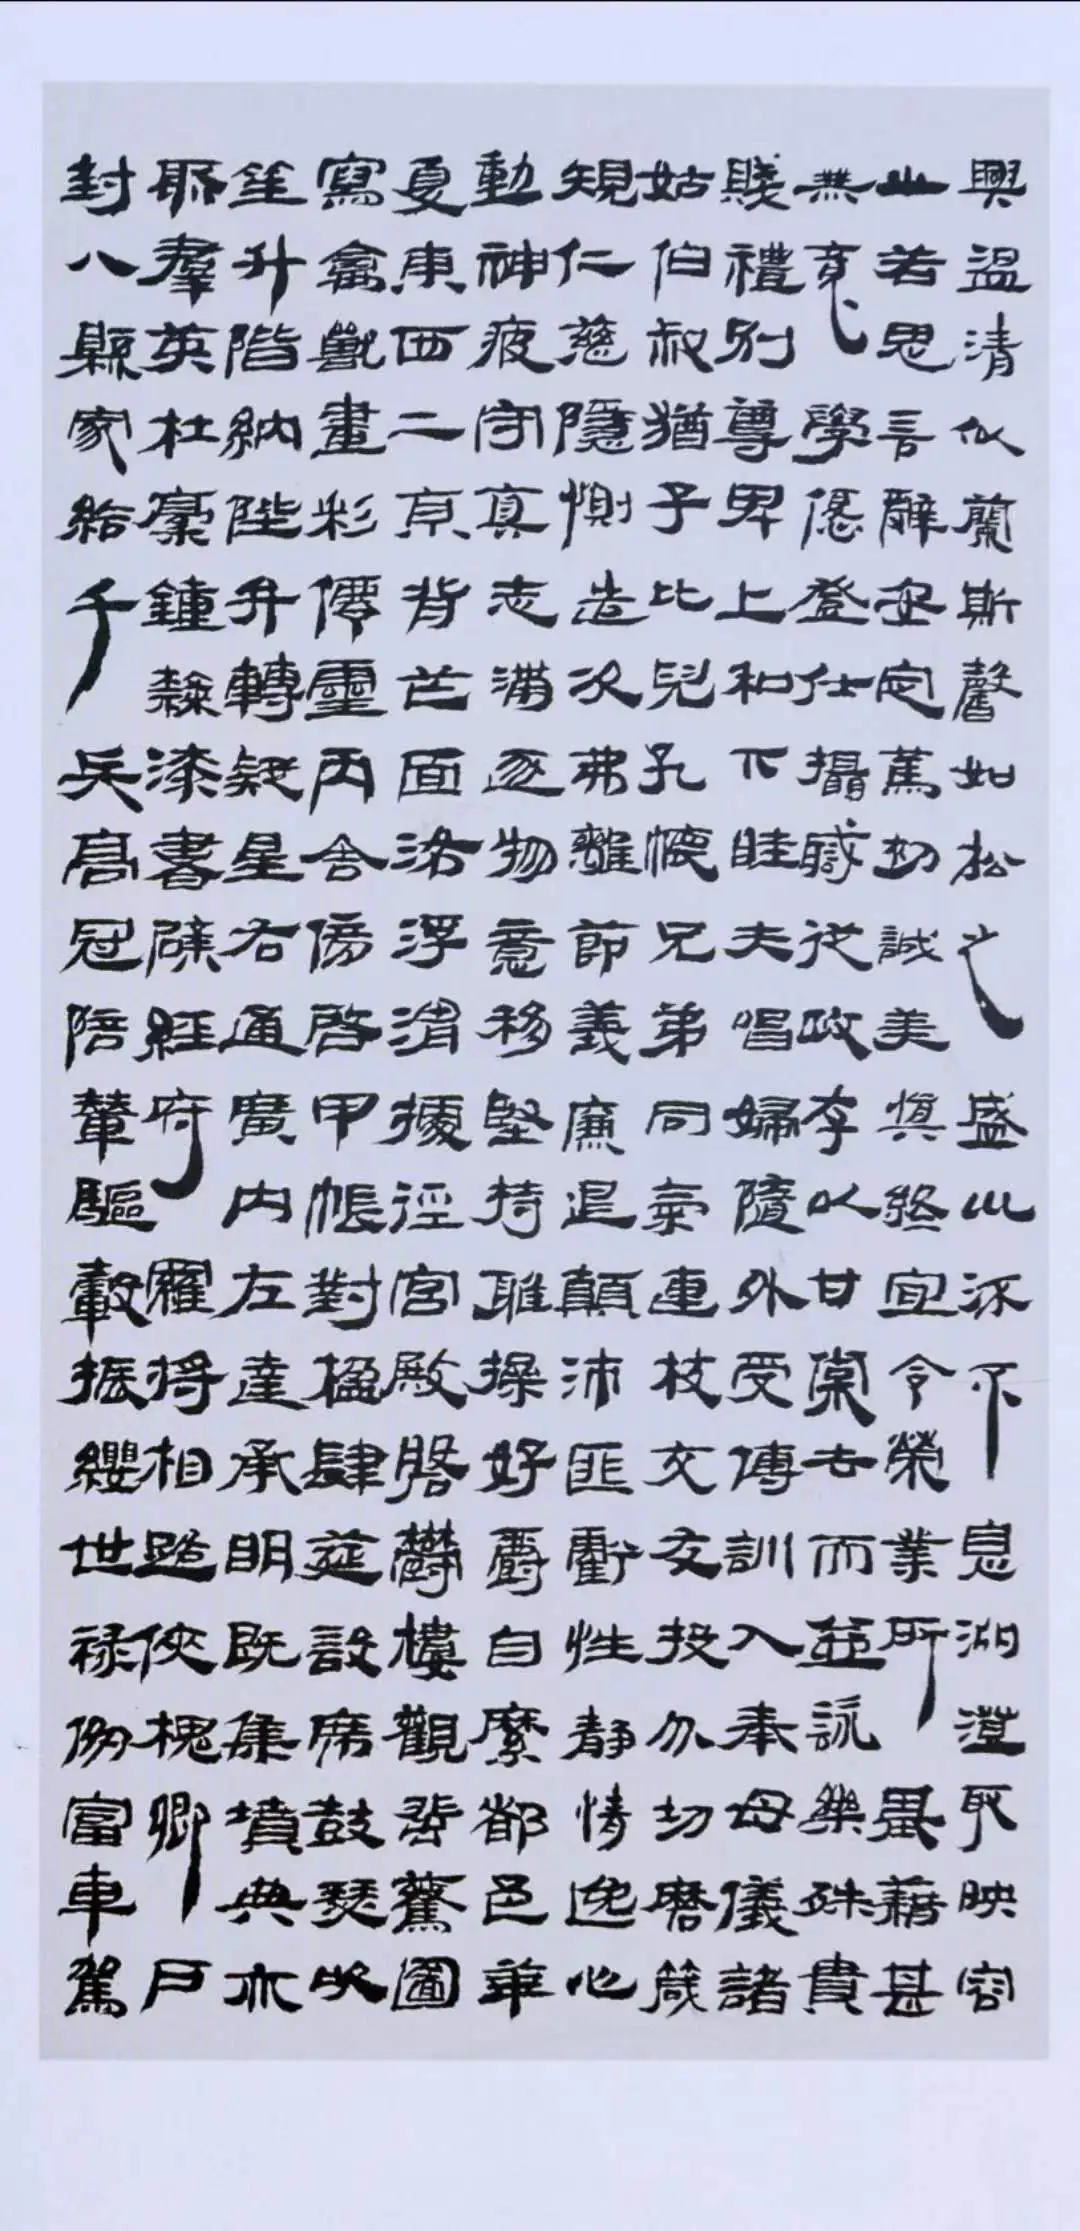 興溫清似蘭斯馨如松之盛川流不息淵澄取映容
止若思言辭安定篤初誠美慎終宜令榮業所基藉甚
無竟學優登仕攝職從政存以甘棠去而益詠樂殊貴
賤禮別尊卑上和下睦夫唱婦隨外受傅訓入奉母儀諸
姑伯叔猶子比兒孔懷兄弟同氣連枝交友投分切磨箴
規仁慈隱惻造次弗離節義廉退顛沛匪虧性靜情逸心
動神疲守真志滿逐物意移堅持雅操好爵自縻都邑華
夏東西二京背芒面洛浮渭據涇宮殿磐鬱樓觀飛驚圖
寫禽獸畫彩僊靈丙舍傍啓甲帳對楹肆筵設席鼓瑟吹
笙升階納陛弁轉疑星右通廣內左達承明既集墳典亦
聚羣英杜稾鍾隸漆書壁經府羅將相路俠槐卿戶
封八縣家給千兵高冠陪輦驅轂振纓世祿侈富車駕